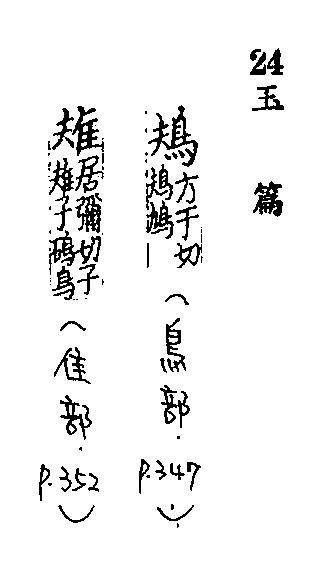 24 玉篇
鳺 方于切 鳺 (鳥部. p.347)
䧱 居彌切子 䧱子鳥 (隹部. p.352)